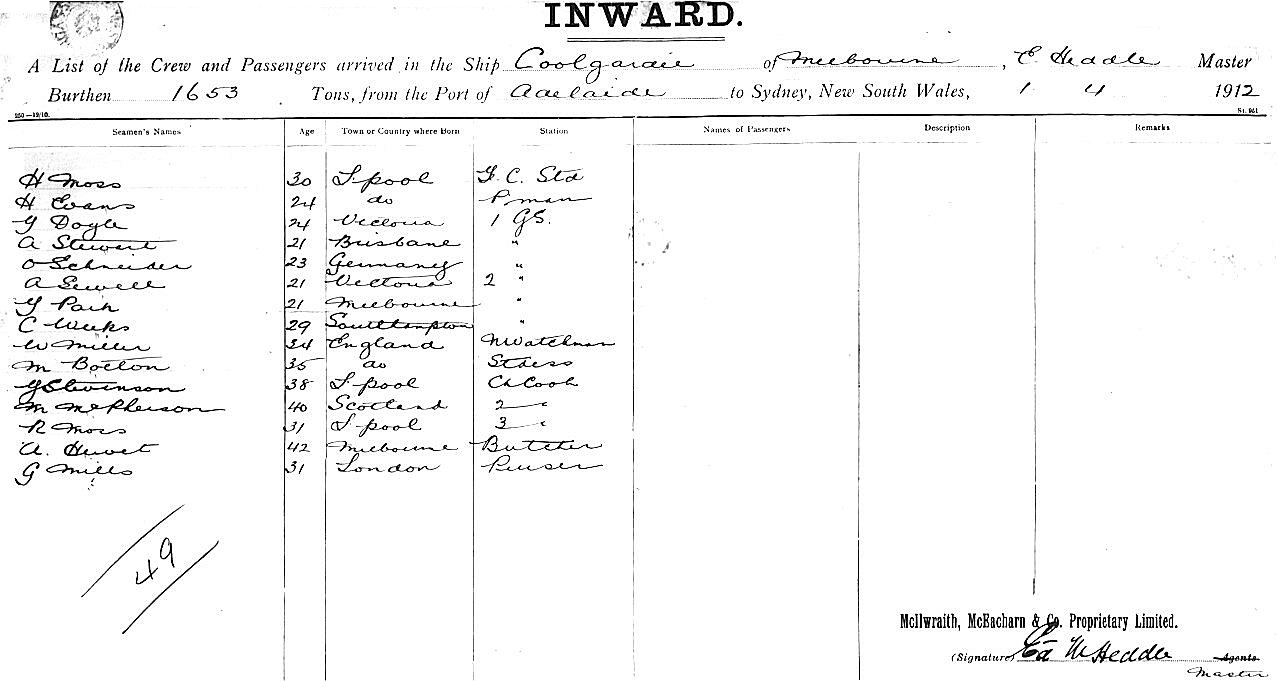 INWARD.
A List of the Crew and Passengers arrived in the Ship Coolgardie of Melbourne, E Heddle Master
Burthen 1653 Tons, from the Port of Adelaide to Sydney, New South Wales, 1 4 1912
250—12/10. St. 961
Seamen's Names Age Town or Country where Born Station Names of Passengers Description Remarks
H Moss 30 L.pool F. C. Std
H Evans 24 do P. man
G Doyle 24 Victoria 1 GS.
A Stewart 21 Brisbane "
O Schneider 23 Germaney "
A Sewell 21 Victoria 2 "
21 Melbourne "
C Weeks 29 Southampton "
W Miller 34 England NWatchman
M Bolton 35 do Stdess
G Stevinson 38 L.pool Ch Cook
M McPherson 40 Scotland 2 "
R Moss 31 L pool 3 "
A. Hewet 42 Melbourne Butcher
G Mills 31 London Purser
49
McIlwraith, McEacharn & Co. Proprietary Limited.
(Signature) Heddle Agents
Master